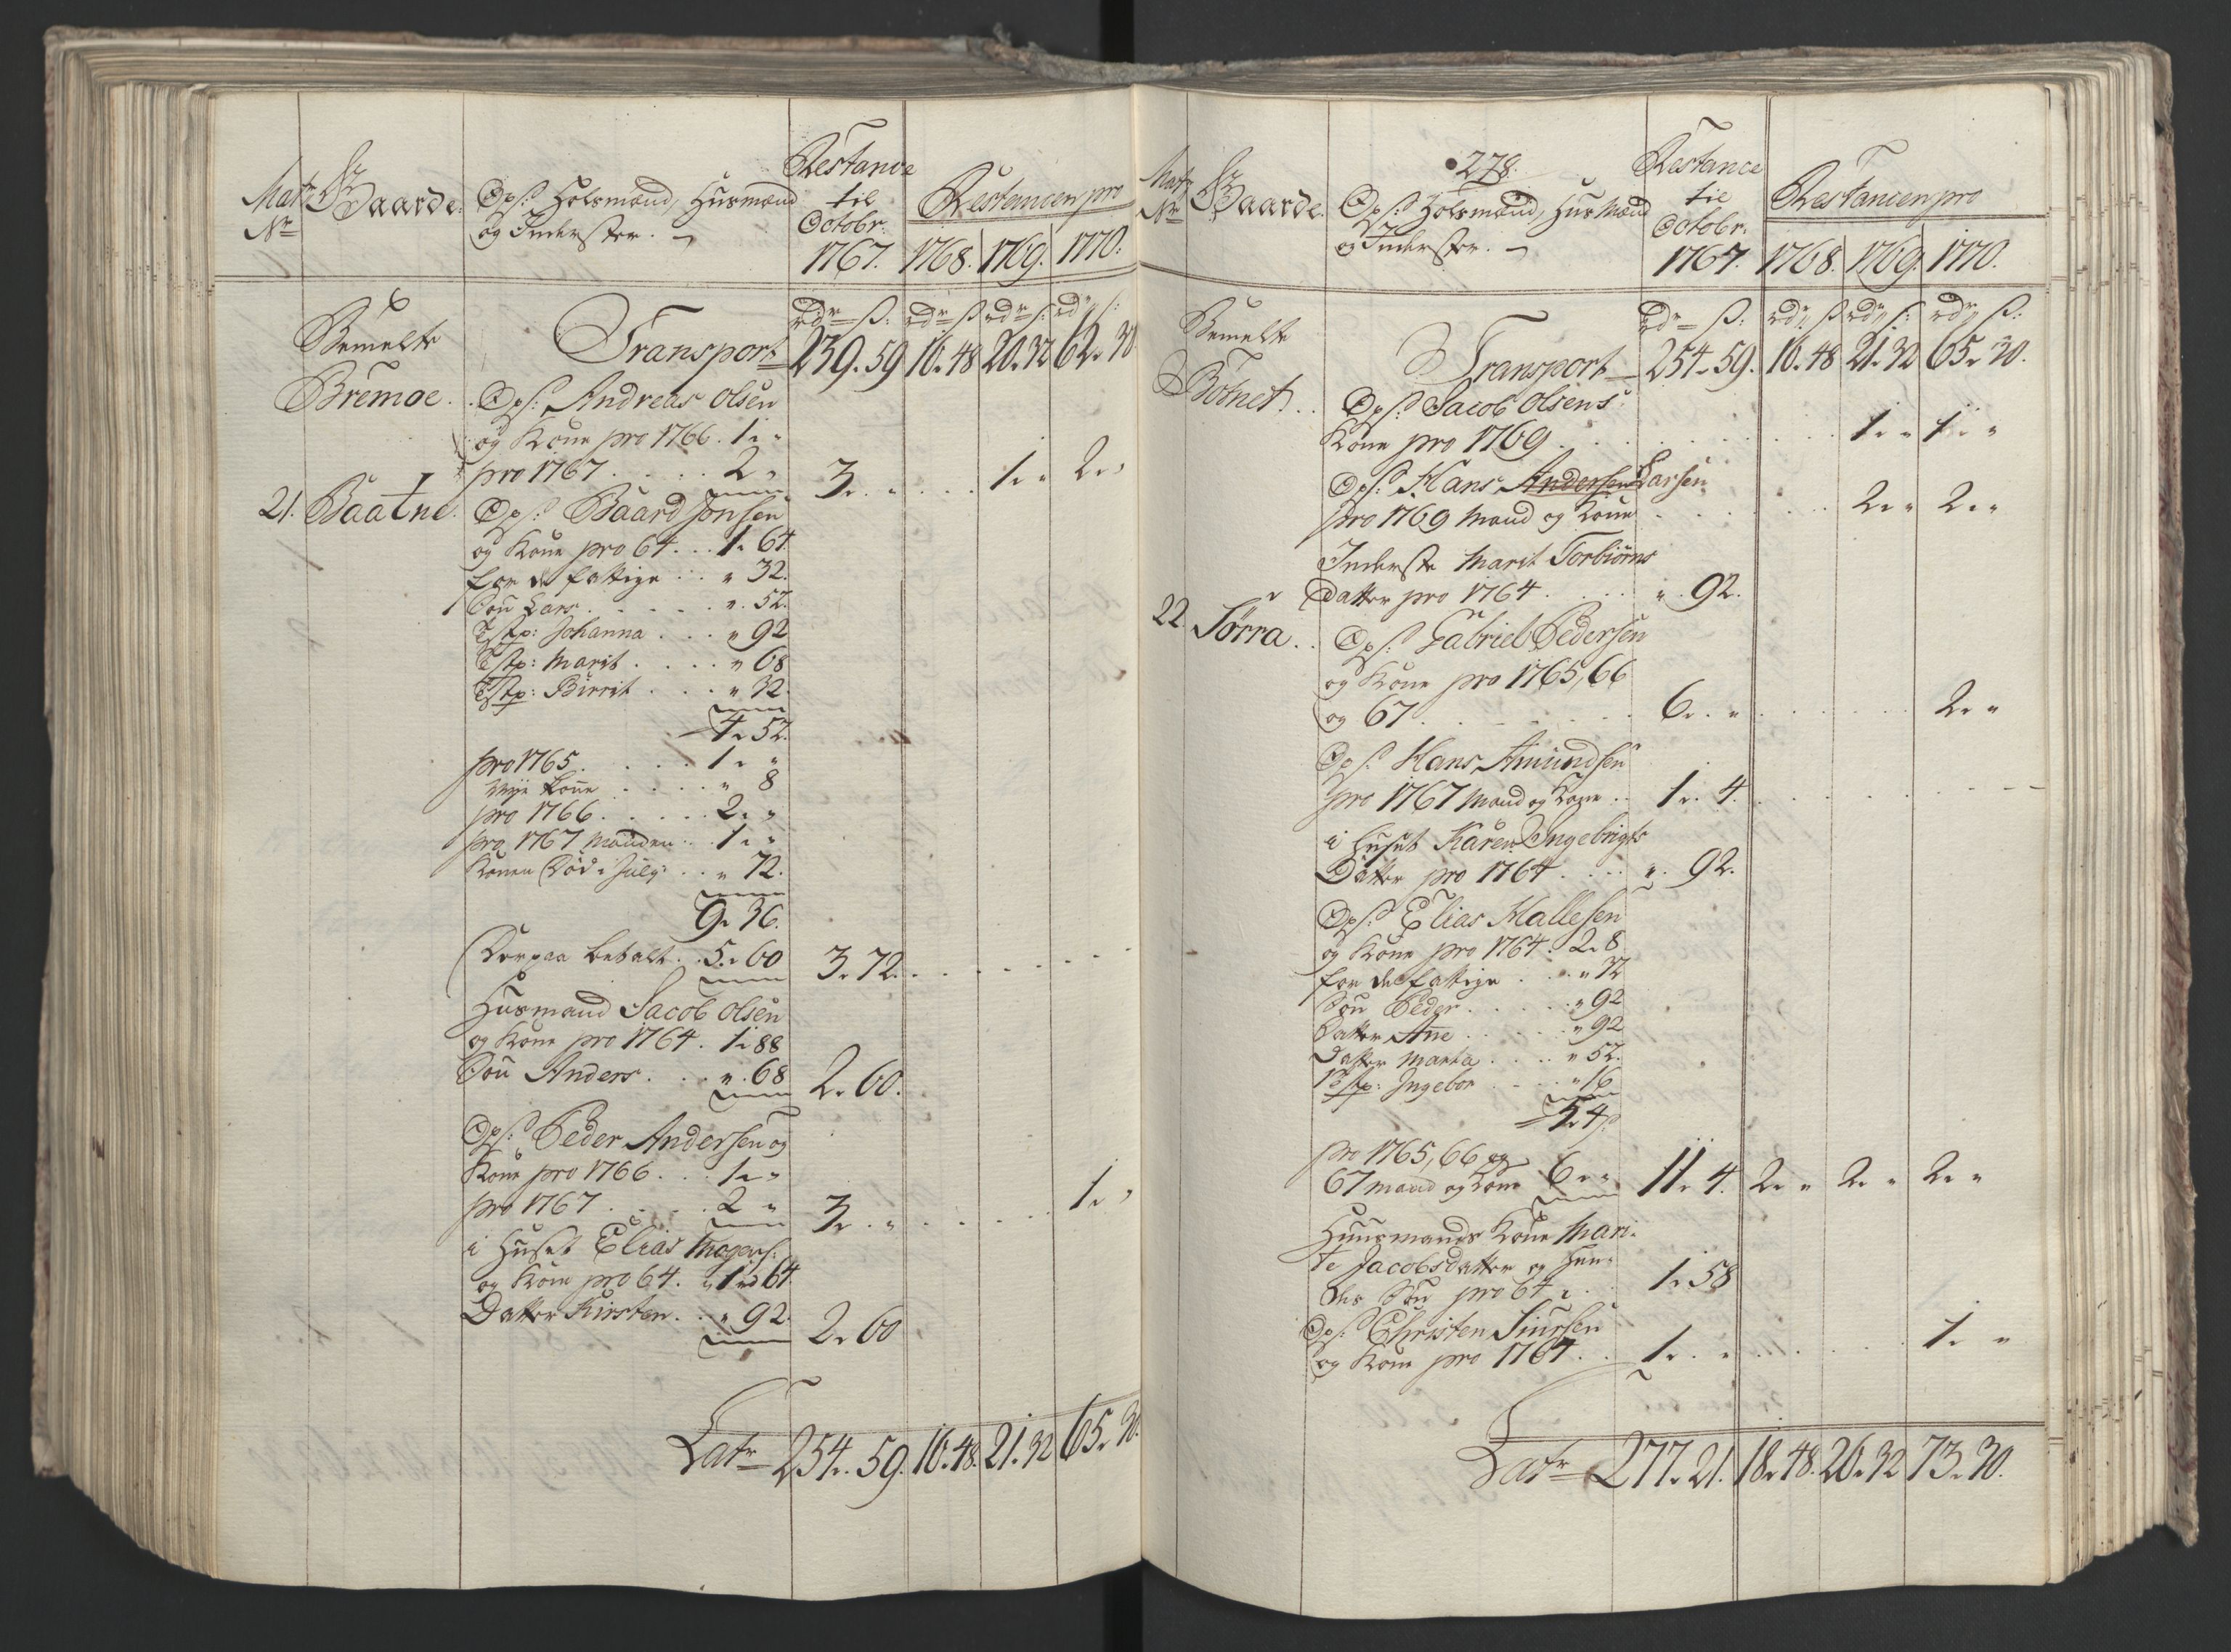 Matr Nr
Gaarde.
Ops: Holsmænd, Husmænd
og Inderster.
Restance
til
Octobr.
1767.
Restancen pro
1768. 1769. 1770.
rdr ß: rdr ß rdr ß: rdr ß:
Bemelte
Bremoe.
Transport 239. 59 16. 48 20. 32 62. 30
Ops: Andreas Olsen
og Kone pro 1766. 1. "
pro 1767 . . . . 2 " 3. " . . . 1. " 2. "
21. Baatne. Ops: Baard Jonsen
og Kone pro 64 . . 1. 64.
for de fattige . . " 32.
Søn Lars . . . . . " 52.
Tstp: Johanna . . . " 92
Tstp: Marit . . . . " 68
Tstp: Birrit . . . " 32.
4. 52.
pro 1765 . . . . . 1. "
nye Kone . . . . " 8
pro 1766 . . . . . 2. "
pro 1767 Manden . . 1. "
Konen død i July . . " 72.
9. 36.
Derpaa betalt . . 5. 60 3. 72.
Husmand Jacob Olsen
og Kone pro 1764 . 1. 88
Søn Anders . . . " 68 2. 60.
Ops: Peder Andersen og
Kone pro 1766 . . 1. "
pro 1767 . . . . 2 " 3. " . . . . 1. "
i Huset Elias Mogens:
og Kone pro 64. " 1. 64
Datter Kirsten . . " 92. 2. 60
Latr 254. 59. 16. 48. 21. 32 65. 30.
278.
Matr Nr
Gaarde.
Ops: Holsmænd, Husmænd
og Inderster.
Restance
til
Octobr.
1767.
Restancen pro
1768. 1769. 1770.
rdr ß: rdr ß rdr ß: rdr ß:
Bemelte
Botnet . .
Transport 254. 59. 16. 48 21. 32 65. 30.
Ops: Jacob Olsens
Kone pro 1769 . . . . . . 1. " 1. "
Ops: Hans Andersen Larsen
pro 1769 Mand og Kone . . . . . 2. " 2. "
Inderste Marit Torbiørns
Datter pro 1764 . . . . " 92.
22 Sørra . . Ops: Gabriel Pedersen
og Kone pro 1765, 66
og 67 . . . . . . . 6. " . . . . . 2. "
Ops: Hans Amundsen
pro 1767 Mand og Kone . . 1. 4.
i Huset Karen Ingebrigts
Datter pro 1764 . . . " 92.
Ops: Elias Hallesen
og Kone pro 1764. 2. 8.
for de fattige . . . " 32
Søn Peder . . . . . " 92
Datter Ane . . . . . " 92
Datter Marta . . . . " 52.
Pstp: Ingebor . . . . " 16
5. 4ß
pro 1765, 66 og
67 Mand og Kone 6. " 11. 4. 2. " 2. " 2. "
Huusmands Kone Mari-
te Jacobsdatter og Hen-
des Søn pro 64 . . 1. 58
Ops: Christen Siursen
og Kone pro 1767. . 1. " . . . . . 1. "
Latr 277. 21. 18. 48. 26. 32 73. 30.